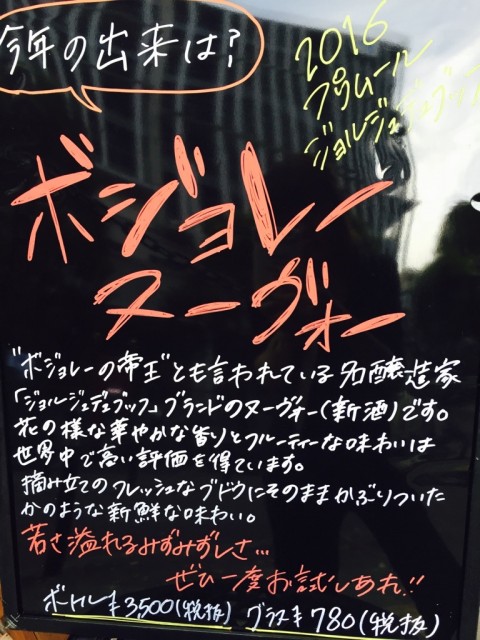 今年の出来は?
2016
プリムール
ジョルジュデュブッフ
ボジョレー
ヌーヴォー
"ボジョレーの帝王"とも言われている名醸造家
「ジョルジュデュブッフ」ブランドのヌーヴォー(新酒)です。
花の様な華やかな香りとフルーティーな味わいは
世界中で高い評価を得ています。
摘み立てのフレッシュなブドウにそのままかぶりついた
かのような新鮮な味わい。
若さ溢れるみずみずしさ…
ぜひ一度お試しあれ!!
ボトル¥3,500(税抜) グラス¥780(税抜)